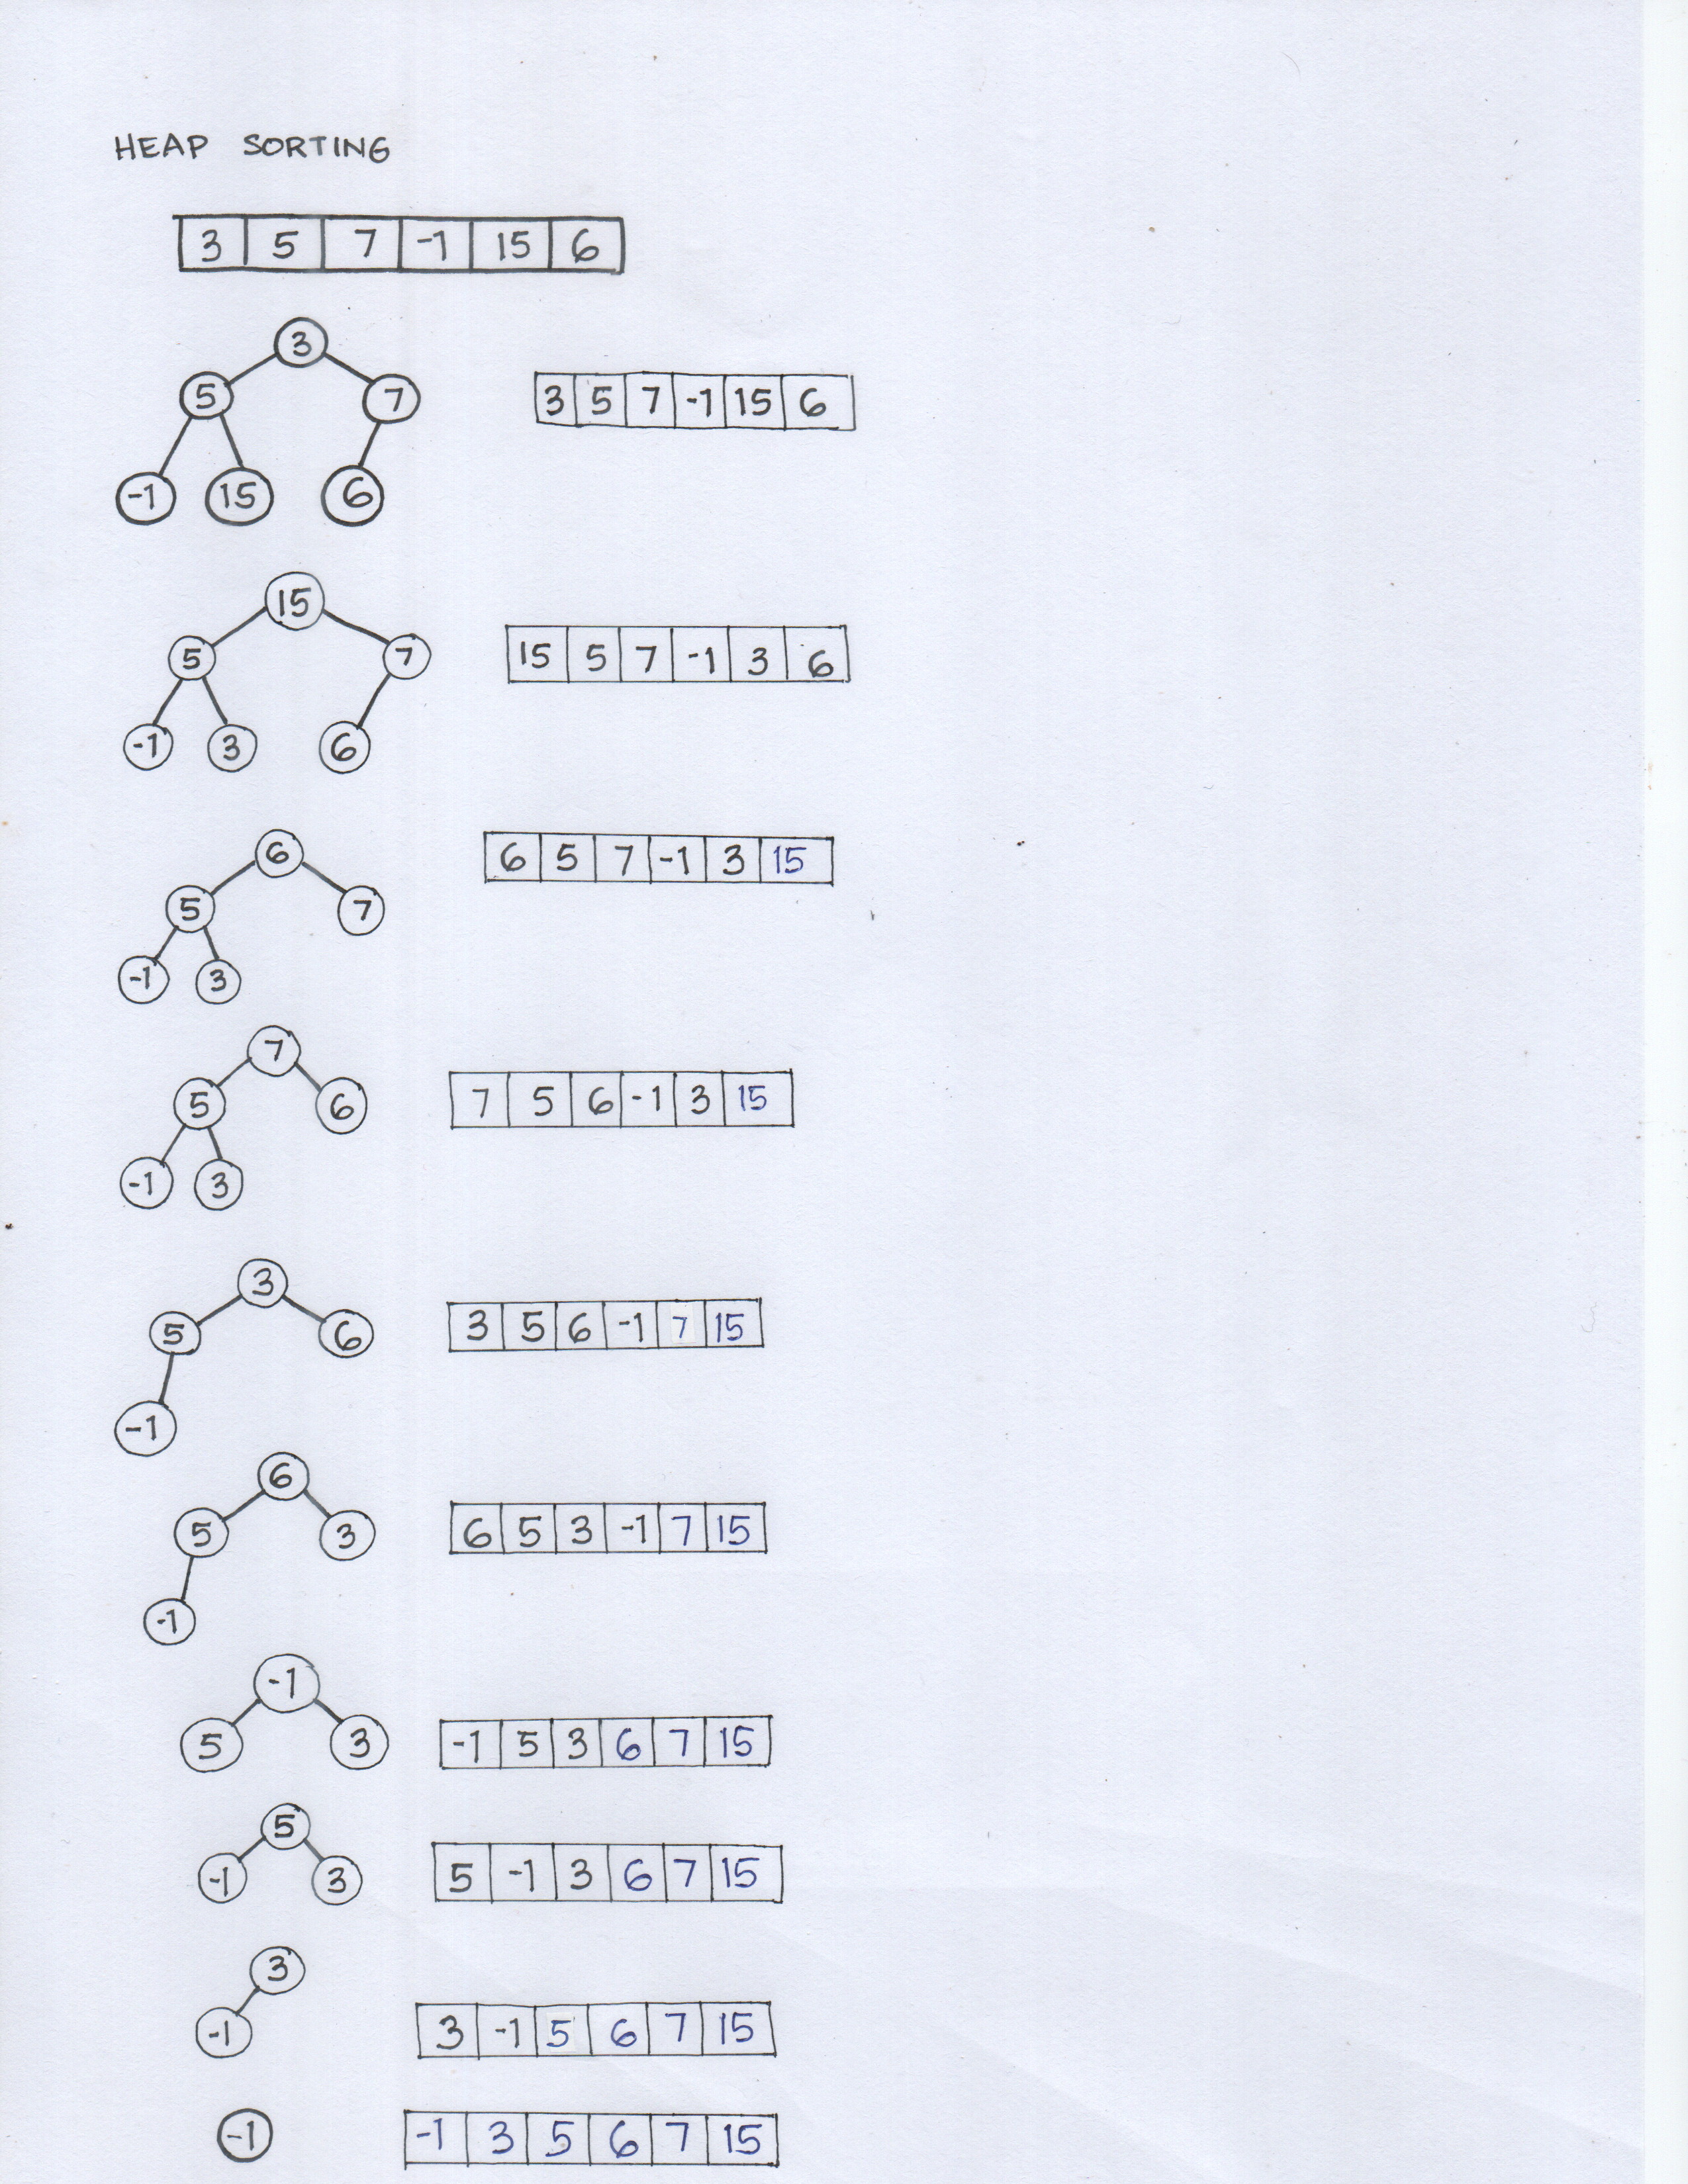 HEAP SORTING
3 5 7 -1 15 6
3
5 7
-1 15 6
3 5 7 -1 15 6
15
5 7
-1 3 6
15 5 7 -1 3 6
6
5 7
-1 3
6 5 7 -1 3 15
7
5 6
-1 3
7 5 6 -1 3 15
3
5 6
-1
3 5 6 -1 7 15
6
5 3
-1
6 5 3 -1 7 15
-1
5 3
-1 5 3 6 7 15
5
-1 3
5 -1 3 6 7 15
3
-1
3 -1 5 6 7 15
-1
-1 3 5 6 7 15